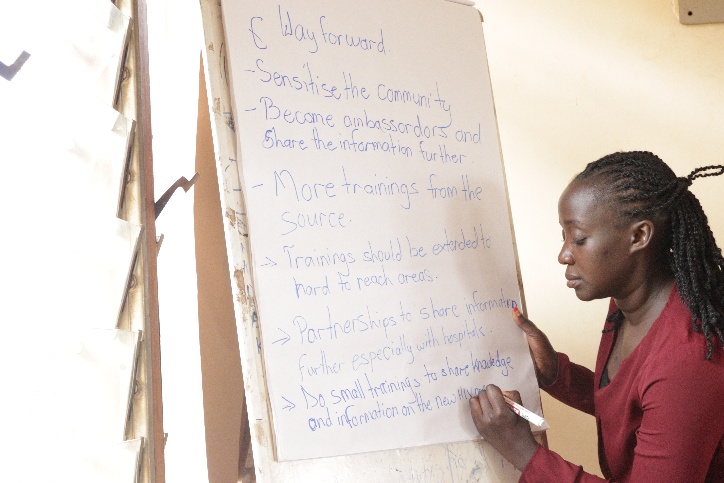 € Way forward.
- Sensitise the Community
- Become ambassordors and
Share the information further.
- More trainings from the
source.
> Trainings should be extended to
hard to reach areas.
> Partnerships to share information
further especially with hospitals.
> Do small trainings to share knowledge
and information on the new HIV